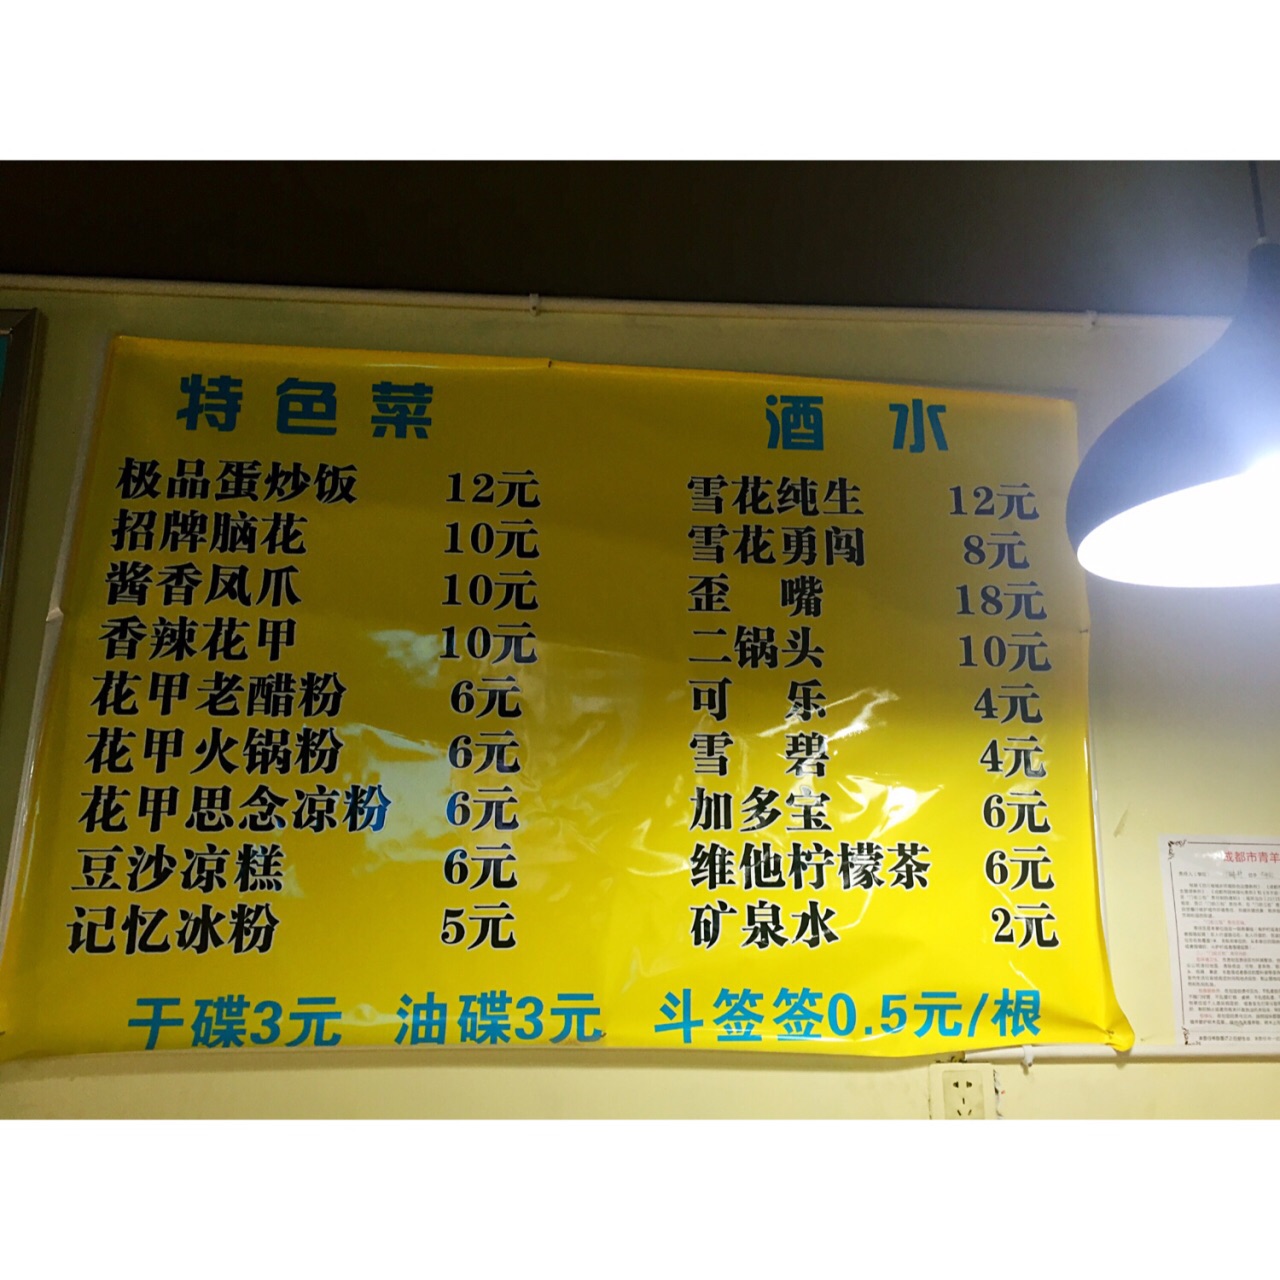 特色菜
极品蛋炒饭 12元
招牌脑花 10元
酱香凤爪 10元
香辣花甲 10元
花甲老醋粉 6元
花甲火锅粉 6元
花甲思念凉粉 6元
豆沙凉糕 6元
记忆冰粉 5元
酒水
雪花纯生 12元
雪花勇闯 8元
歪嘴 18元
二锅头 10元
可乐 4元
雪碧 4元
加多宝 6元
维他柠檬茶 6元
矿泉水 2元
干碟3元 油碟3元 斗签签0.5元/根
成都市青羊